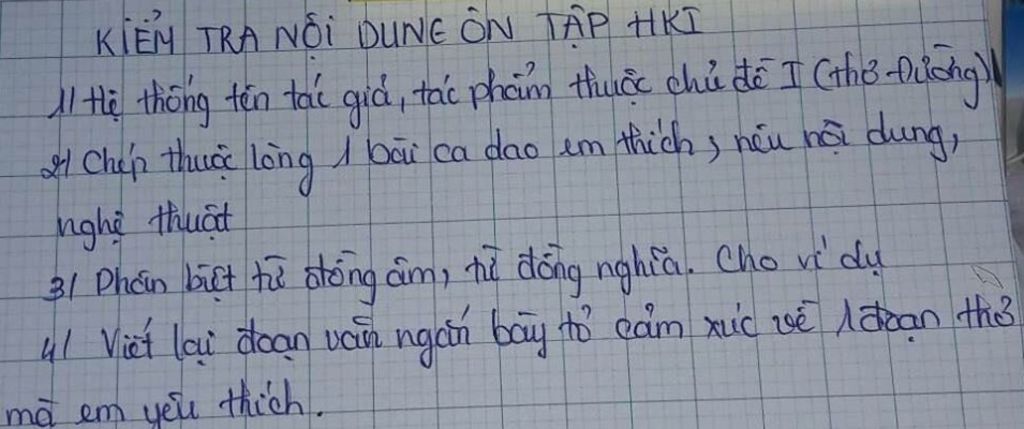 KIỂM TRA NỘI DUNG ÔN TẬP HKI
1/ Hệ thống tên tác giả, tác phẩm thuộc chủ đề I (thơ Đường)
2/ Chép thuộc lòng 1 bài ca dao em thích, nêu nội dung,
nghệ thuật
3/ Phân biệt từ đồng âm, từ đồng nghĩa. Cho ví dụ
4/ Viết lại đoạn văn ngắn bày tỏ cảm xúc về 1 đoạn thơ
mà em yêu thích.